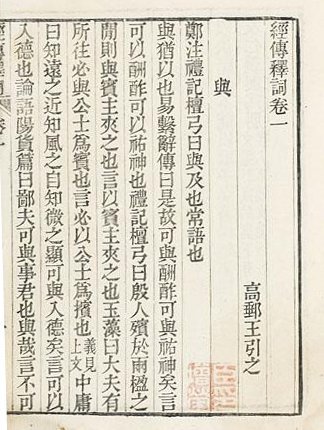 經傳釋詞卷一
高郵王引之
與
鄭注禮記檀弓曰與及也常語也
與猶以也易繫辭傳曰是故可與酬酢可與祐神矣言
可以酬酢可以祐神也禮記檀弓曰殷人殯於兩楹之
閒則與賓主夾之也言以賓主夾之也玉藻曰大夫有
所往必與公士爲賓也言必以公士爲擯也義見上文中庸
曰知遠之近知風之自知微之顯可與入德矣言可以
入德也論語陽貨篇曰鄙夫可與事君也與哉言不可